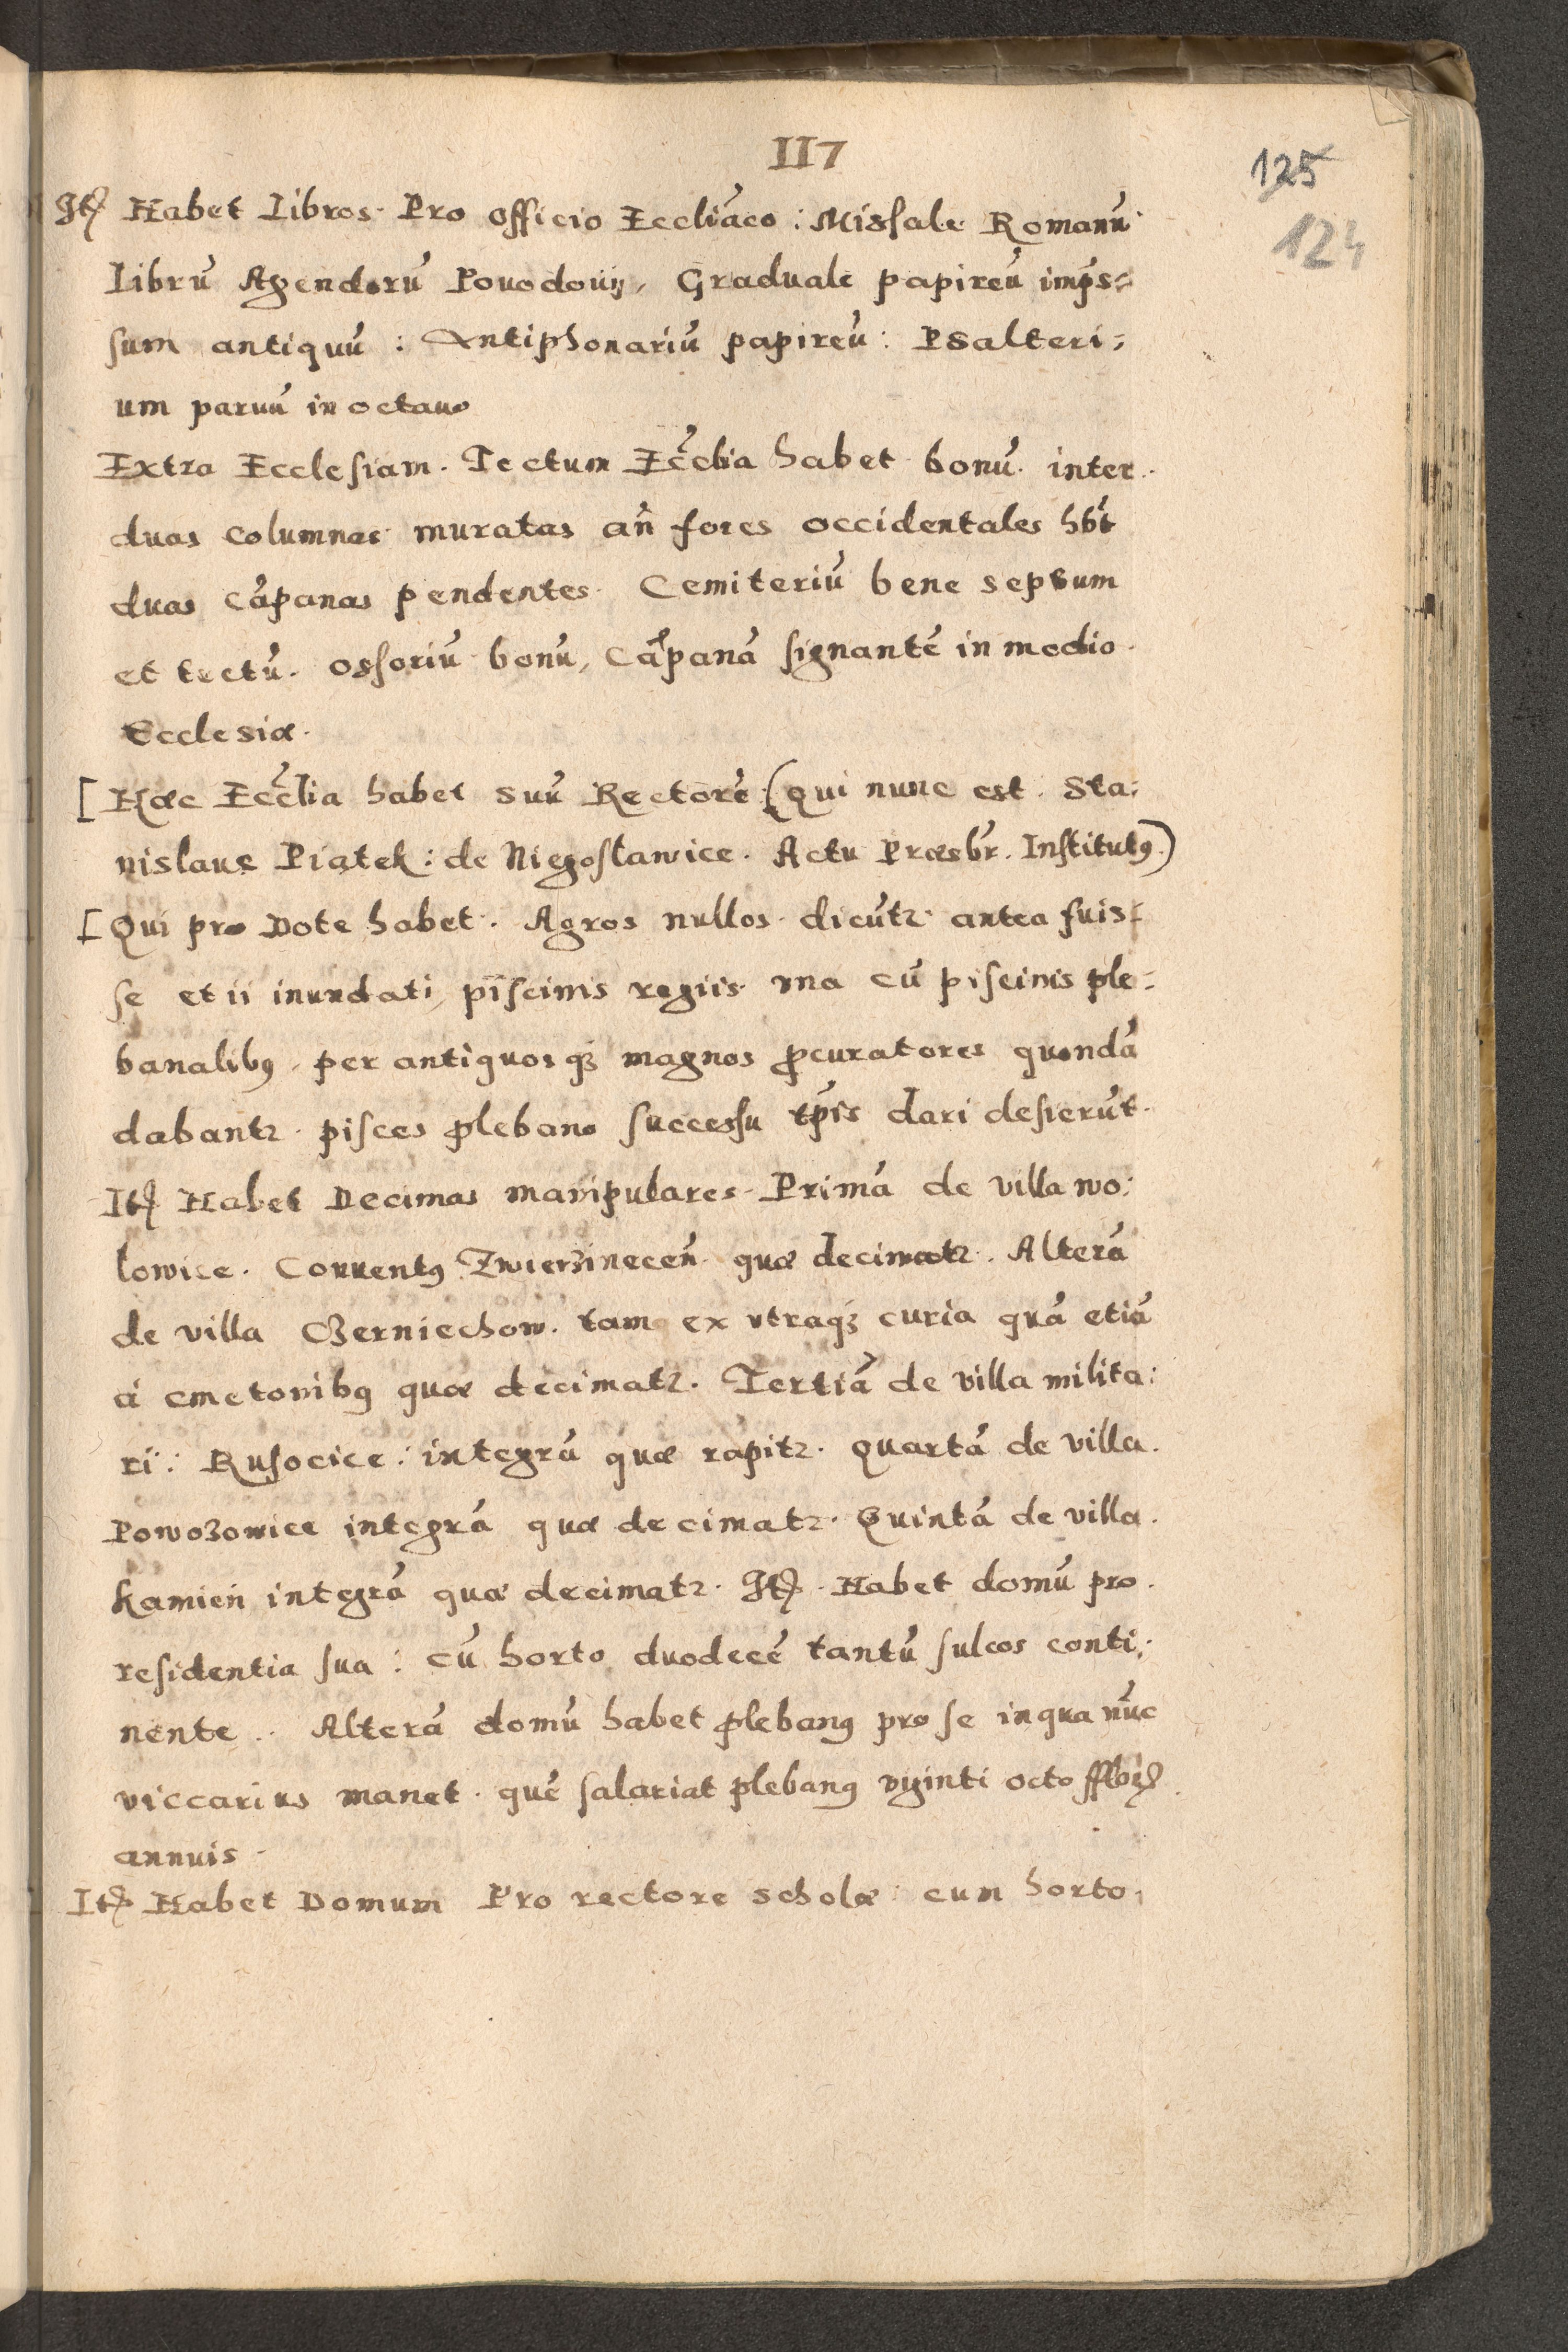 117
125
124
Itē Habet Libros Pro officio Eccliaco : Missale Romanū
Librū Agendorū Povodovij, Graduale papireū imps=
sum antiquū : Antiphonariū papireū : Psalteri=
um parvū in octavo
Extra Ecclesiam. Tectum Ecclia habet bonū. inter
duas columnas muratas an̄ fores occidentales hbt
duas cāpanas pendentes. Cemiteriū bene sepsum
et tectū. Ossoriū bonū, Cāpanā signantē in medio
Ecclesiæ.
[Hæc Ecclia habet suū Rectorē (Qui nunc est Sta:
nislaus Piątek : de Niegosławice. Actu Præsbr. Institutꝰ)
[Qui pro Dote habet. Agros nullos dicūtꝛ antea fuis=
se et ii inundati, piscinis regiis una cū piscinis ple=
banalibꝰ, per antiquos qꝫ magnos ꝓcuratores quondā
dabantꝛ pisces plebano successu tp̄is dari desierūt.
Itē Habet Decimas manipulares Primā de villa wo:
lowice. Conventꝰ Zwierzinecen̄ quæ decimatꝛ. Alterā
de villa Czerniechow. tam ex utraqꝫ curia quā etiā
á cmetonibꝰ quæ decimatꝛ. Tertiā de villa milita:
ri : Rusocice : integrā quæ rapitꝛ. Quartā de villa
Powozowice integrā quæ decimatꝛ. Quintā de villa
Kamień integrā quæ decimatꝛ. Itē Habet domū pro
residentia sua : cū horto duodecē tantū sulcos conti:
nente. Alterā domū habet plebanꝰ pro se in qua nūc
viccarius manet. quē salariat plebanꝰ viginti octo fflor̄
annuis
Itē Habet Domum Pro rectore scholæ cum horto,